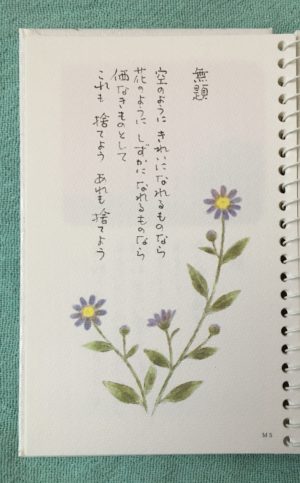 無題
空のように きれいになれるものなら
花のように しずかに なれるものなら
価なきものとして
これも 捨てよう あれも捨てよう
M S